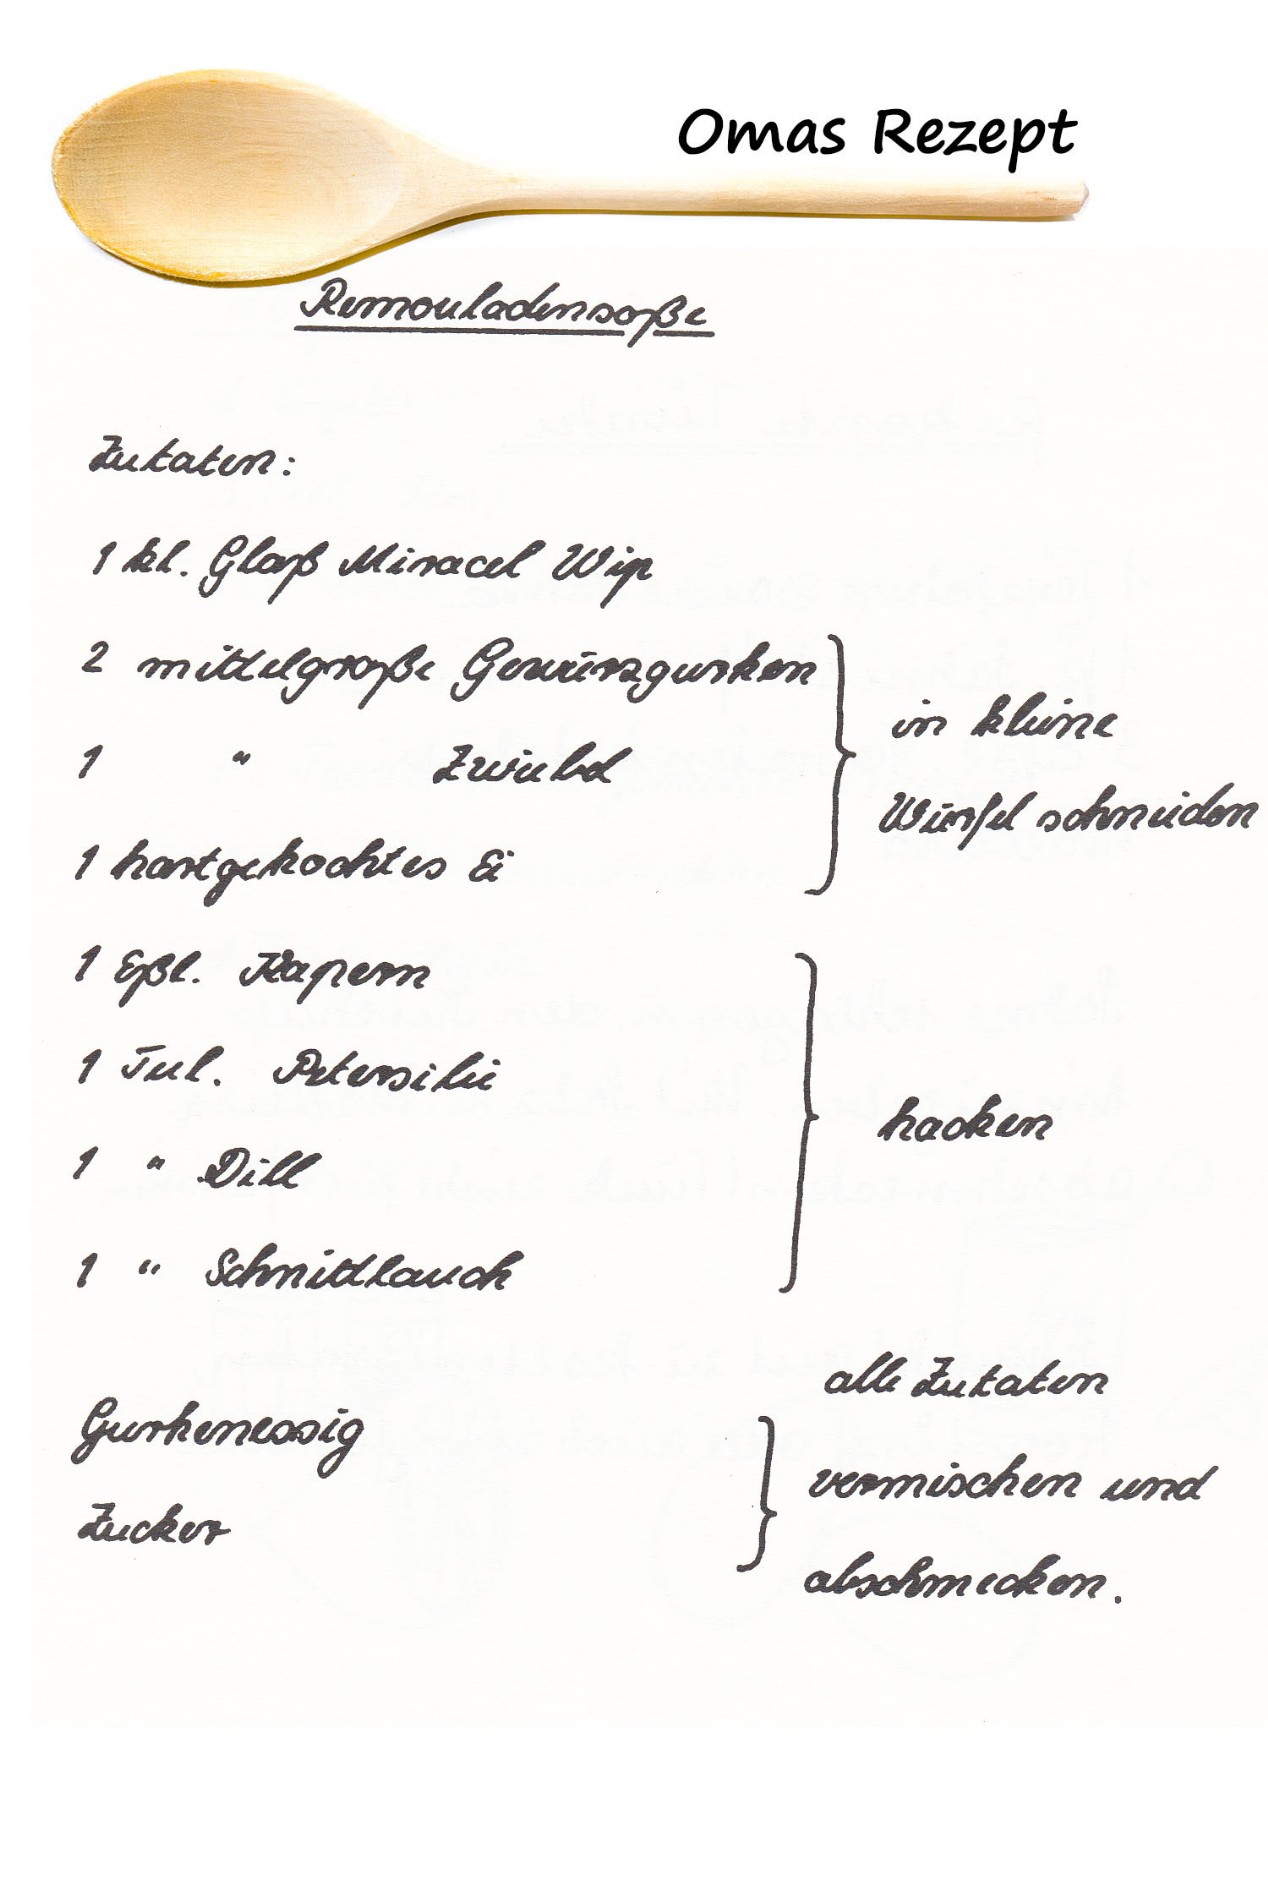 Omas Rezept
Remouladensoße
Zutaten:
1 kl. Glaß Miracel Wip
2 mittelgroße Gewürzgurken
1 " Zwiebel
1 hartgekochtes Ei
in kleine
Würfel schneiden
1 Eßl. Kapern
1 Teel. Petersilie
1 " Dill
1 " Schnittlauch
hacken
Gurkenessig
Zucker
alle Zutaten
vermischen und
abschmecken.